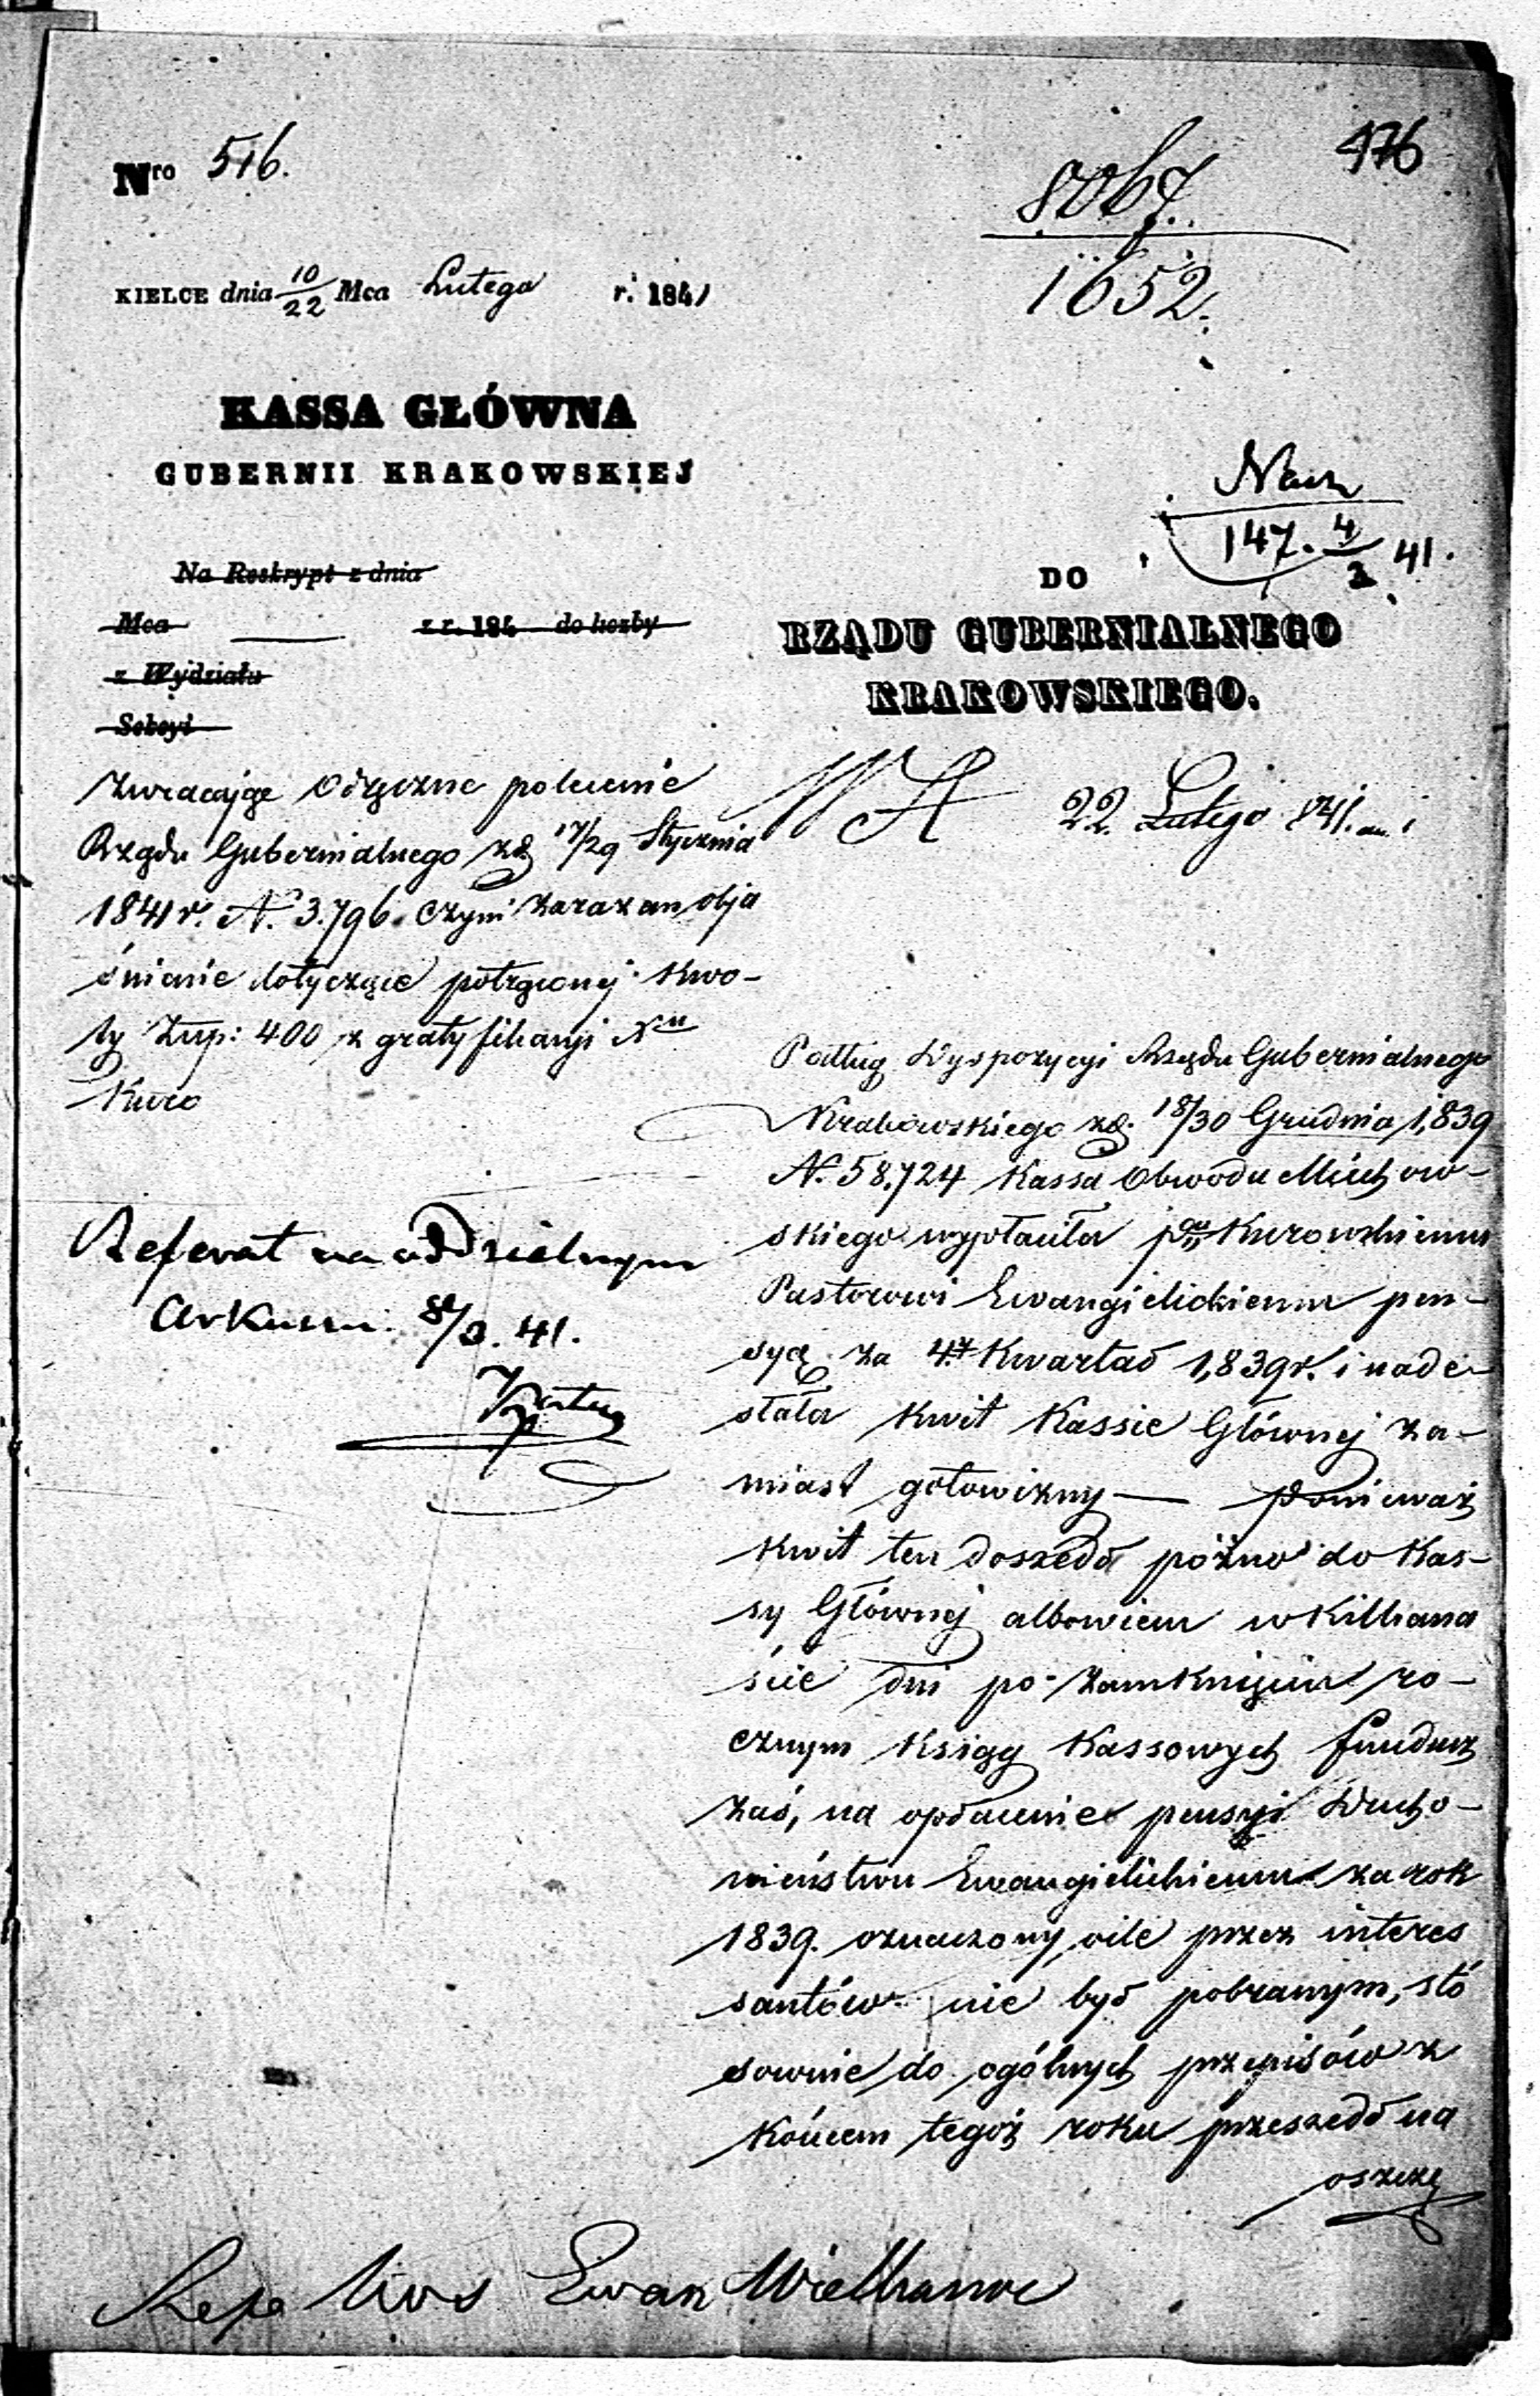 476
Nro 516.
8067.
1652.
KIELCE dnia 10/22 Mca Lutego r. 1841
KASSA GŁÓWNA
GUBERNII KRAKOWSKIEJ
147. 4/3 41.
Na Reskrypt z dnia
Mca z r. 184 do liczby
z Wydziału
Sekcyi
DO
RZĄDU GUBERNIALNEGO
KRAKOWSKIEGO.
WA 22 Lutego 841.
Zwracając odręczne polecenie
Rządu Gubernialnego z d. 17/29 Stycznia
1841 r. N. 3.796. czyni zarazem obja
śnienie dotyczące potrąconej kwo-
ty Złp: 400 z gratyfikacyi
Kuro
Referat na oddzielnym
Arkuszu. 8/3. 41.
Podług Dyspozycyi Rządu Gubernialnego
Krakowskiego z d. 18/30 Grudnia 1,839
N. 58.724 Kassa Obwodu Miechow-
skiego wypłaciła panu Kurowskiemu
Pastorowi Ewangielickiemu pen-
syą za 4ty Kwartał 1,839 r. i nade-
słała kwit Kassie Głównej za-
miast gotowizny — ponieważ
kwit ten doszedł późno do Kas-
sy Głównej albowiem w kilkana
ście dni po zamknięciu ro-
cznym ksiąg Kassowych fundusz
zaś, na opłacenie pensyi Ducho-
wieństwu Ewangielickiemu za rok
1839. oznaczony, oile przez interes
santów nie był pobranym, stó
sownie do ogólnych przepisów z
końcem tegoż roku przeszedł na
oszczę
Repe Kos Ewan Wielkanoc